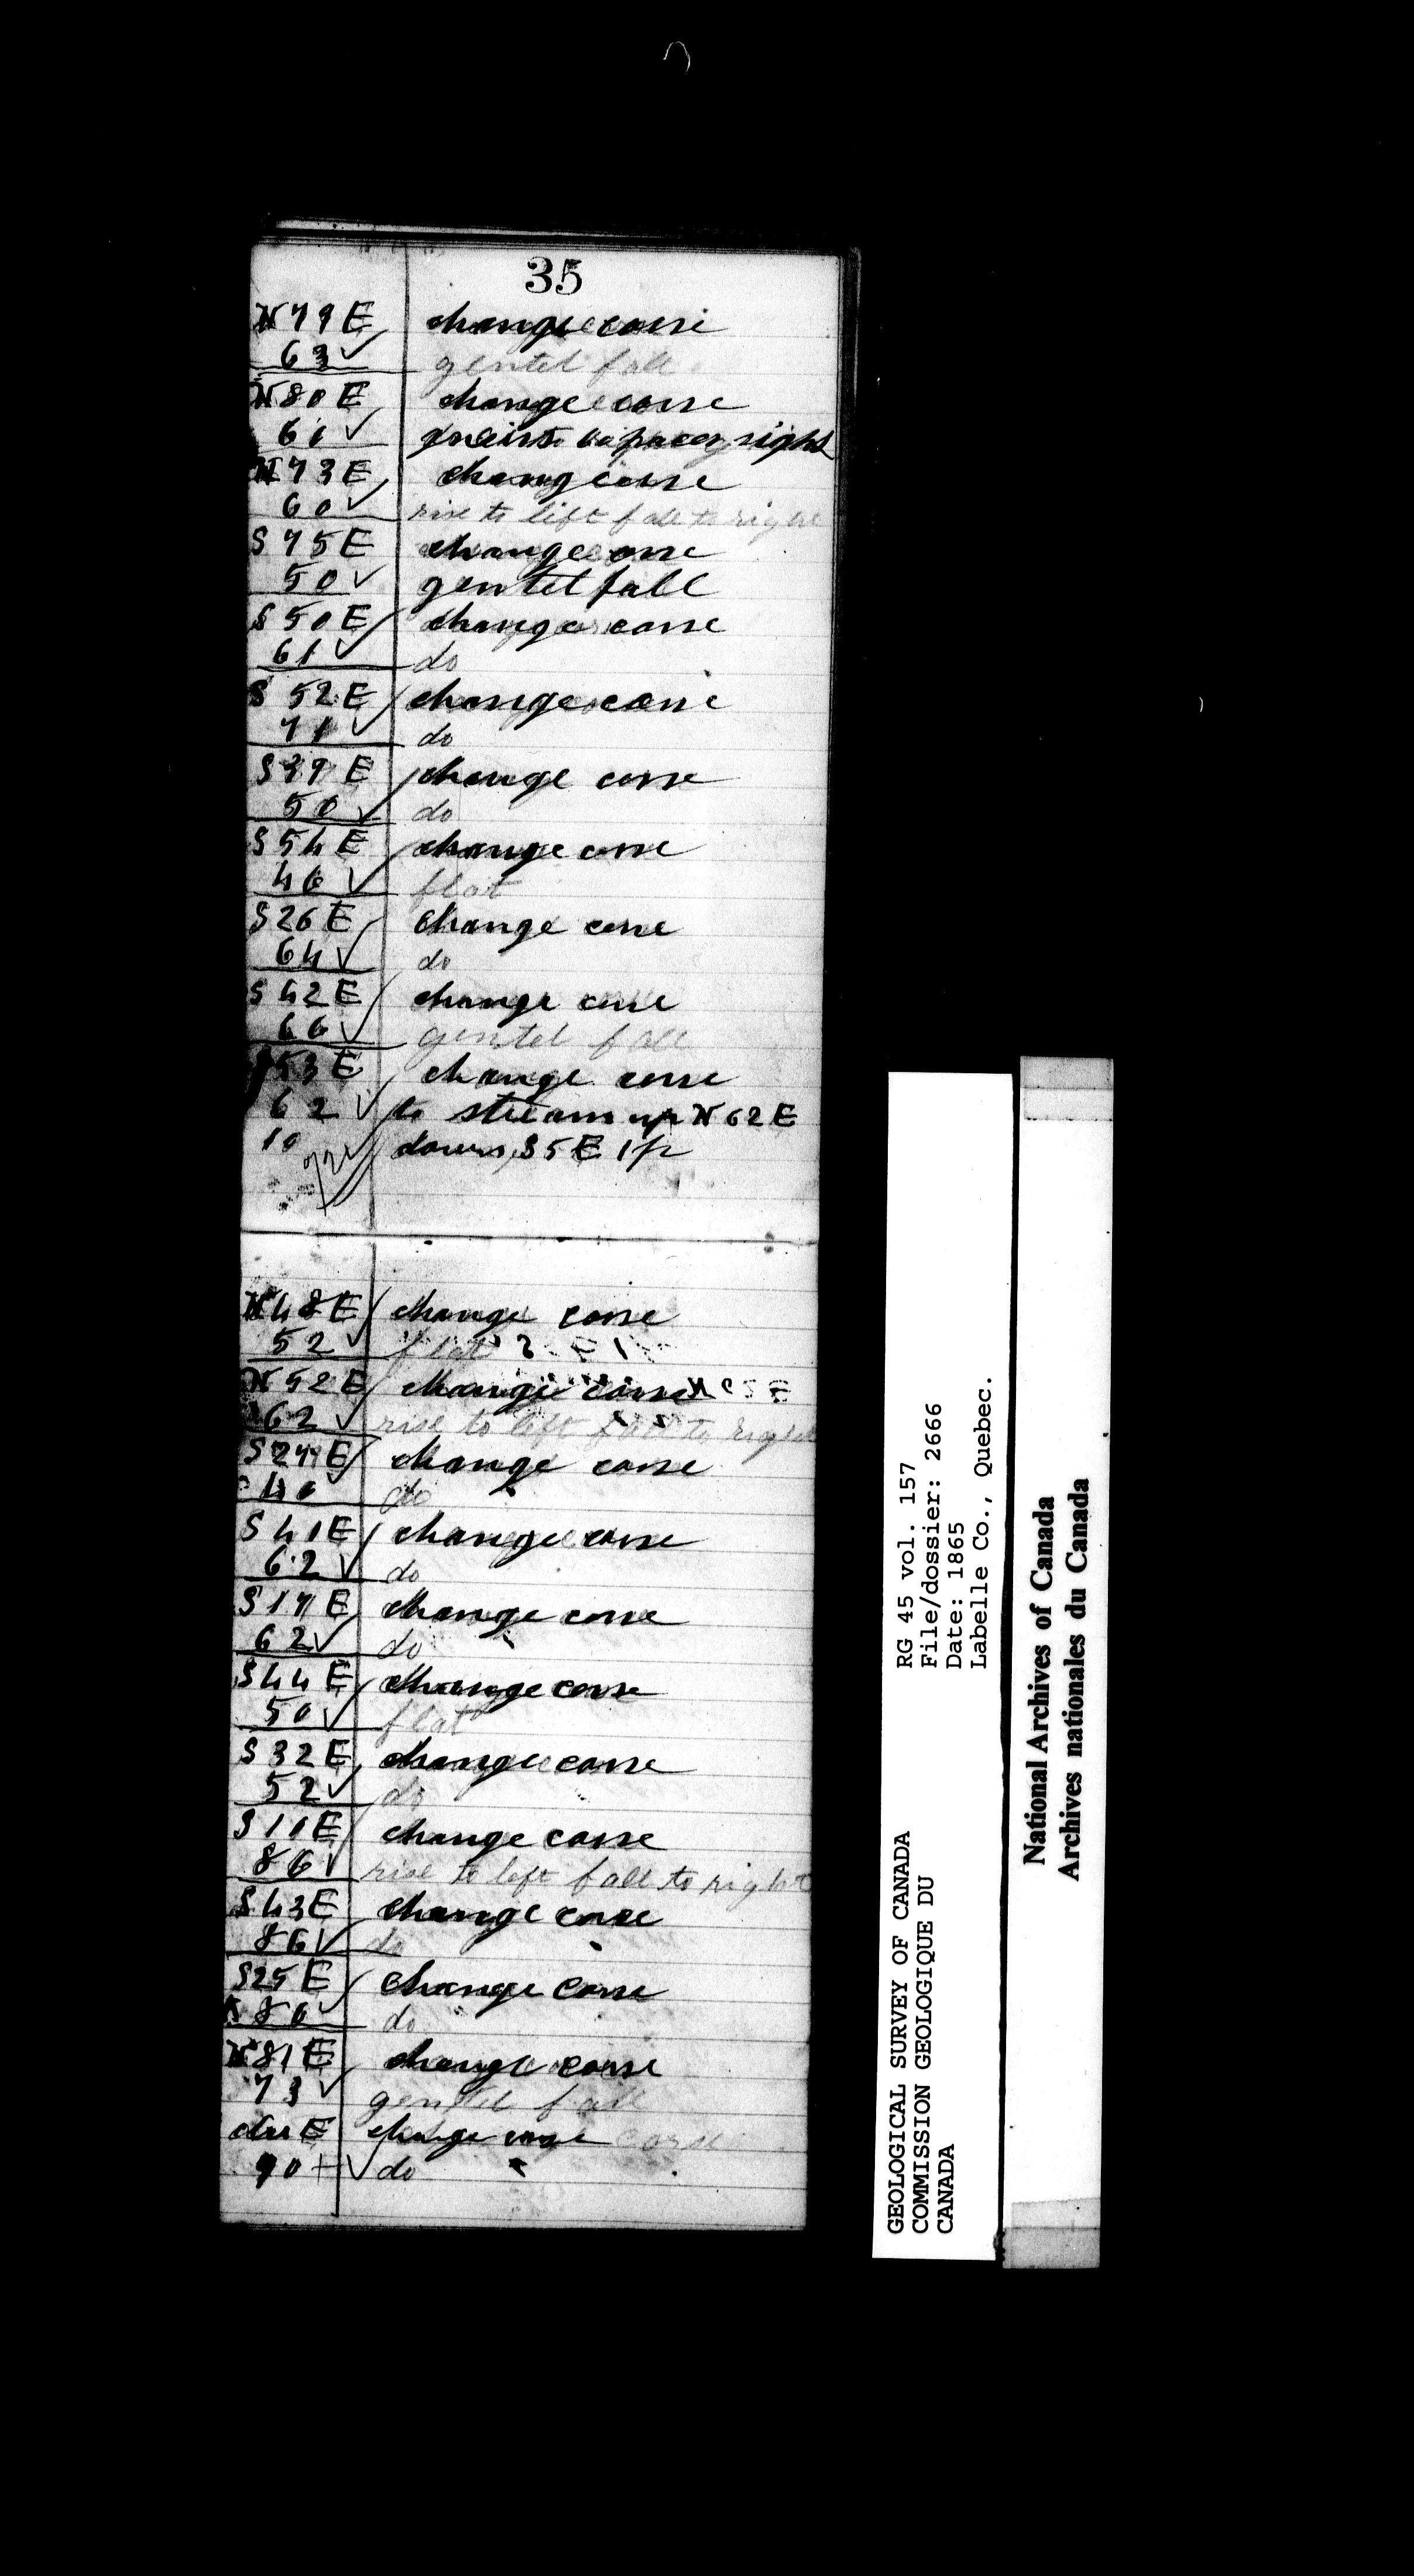 35
N 79 E change corse
63 ✓ gentel fall
N 80 E change corse
61 ✓ paces right
N 73 E chang corse
60 ✓ rise to left fall to right
S 75 E change corse
50 ✓ gentel fall
S 50 E change corse
61 ✓ do
S 52 E change corse
71 ✓ do
S 39 E change corse
50 ✓ do
S 54 E change corse
46 ✓ flat
S 26 E change corse
64 ✓ do
S 42 E change corse
66 ✓ gentel fall
S 53 E change corse
62 ✓ to stream up N 62 E
10 down S 5 E 1 p
72 ✓
N 48 E change corse
52 ✓ flat
N 52 E change corse
62 ✓ rise to left fall to right
S 27 E change corse
40 ✓ do
S 41 E change corse
62 ✓ do
S 17 E change corse
62 ✓ do
S 44 E change corse
50 ✓ flat
S 32 E change corse
52 ✓ do
S 11 E change corse
86 ✓ rise to left fall to right
S 43 E change corse
86 ✓ do
S 25 E change corse
80 ✓ do
N 81 E change corse
73 ✓ gentel fall
due E change corse
90 + ✓ do
GEOLOGICAL SURVEY OF CANADA RG 45 vol. 157
COMMISSION GEOLOGIQUE DU File/dossier: 2666
CANADA Date: 1865
Labelle Co., Quebec.
National Archives of Canada
Archives nationales du Canada